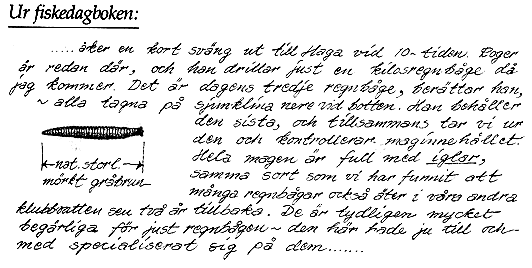 Ur fiskedagboken:
.....åker en kort sväng ut till Haga vid 10-tiden. Roger
är redan där, och han drillar just en kilosregnbåge då
jag kommer. Det är dagens tredje regnbåge, berättar han,
~ alla tagna på spinnklina nere vid botten. Han behåller
den sista, och tillsammans tar vi ur
den och kontrollerar maginnehållet.
Hela magen är full med iglar,
samma sort som vi har funnit att
många regnbågar också äter i våra andra
nat. storl.
mörkt gråbrun
klubbvatten sen två år tillbaka. De är tydligen mycket
begärliga för just regnbågen ~ den här hade ju till och
med specialiserat sig på dem.......